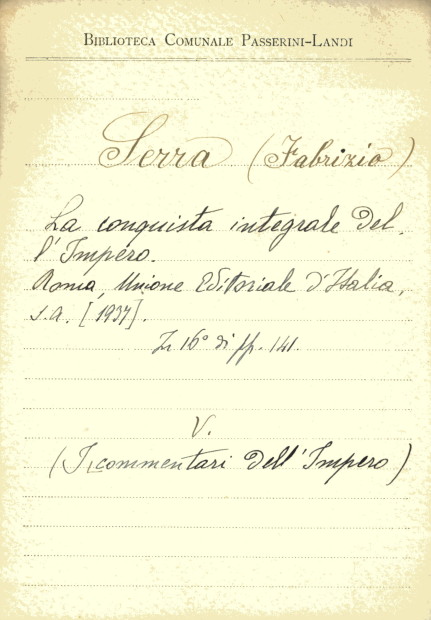 BIBLIOTECA COMUNALE PASSERINI-LANDI
Serra (Fabrizio)
La conquista integrale del-
l'Impero.
Roma, Unione Editoriale d'Italia,
s.a. [1937].
In 16° di pp. 141.
V.
(I commentari dell'Impero)